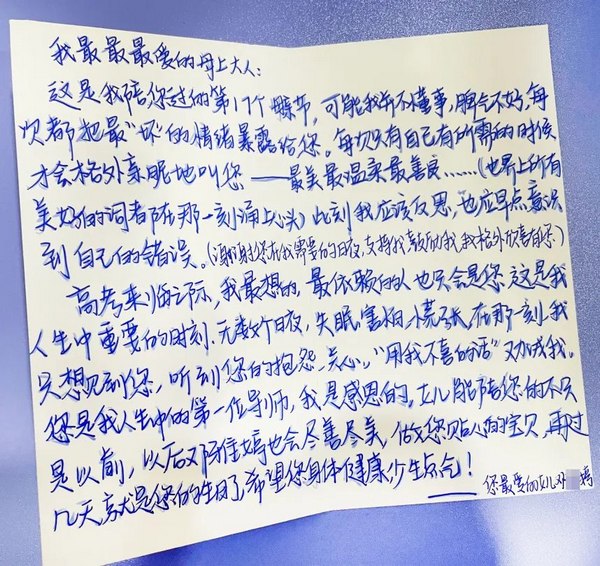 我最最最爱的母上大人:
这是我陪您过的第17个母亲节,可能我并不懂事,脾气不好,每
次都把最“坏”的情绪暴露给您。每切只有自己有所需的时候
才会格外亲昵地叫您——最美最温柔最善良……(世界上所有
美好的词者都在那一刻涌上心头)此刻我应该反思,也应早点意识
到自己的错误。(谢谢您在我需要的日夜,支持我鼓励我,我格外欣喜
高考来临之际,我最想的,最依赖的人也只会是您,这是我
人生中重要的时刻.无数个日夜,失眠,害怕,慌张,在那一刻,我
只想见到您,听到您的抱怨,关心,“用我不喜的话”劝诫我。
您是我人生中的第一位导师,我是感恩的,女儿能陪您的不只
是以前,以后邓佳嫣也会尽善尽美,做您贴心的宝贝,再过
几天就是您的生日了,希望您身体健康少生点气!
——您最爱的女儿邓 嫣